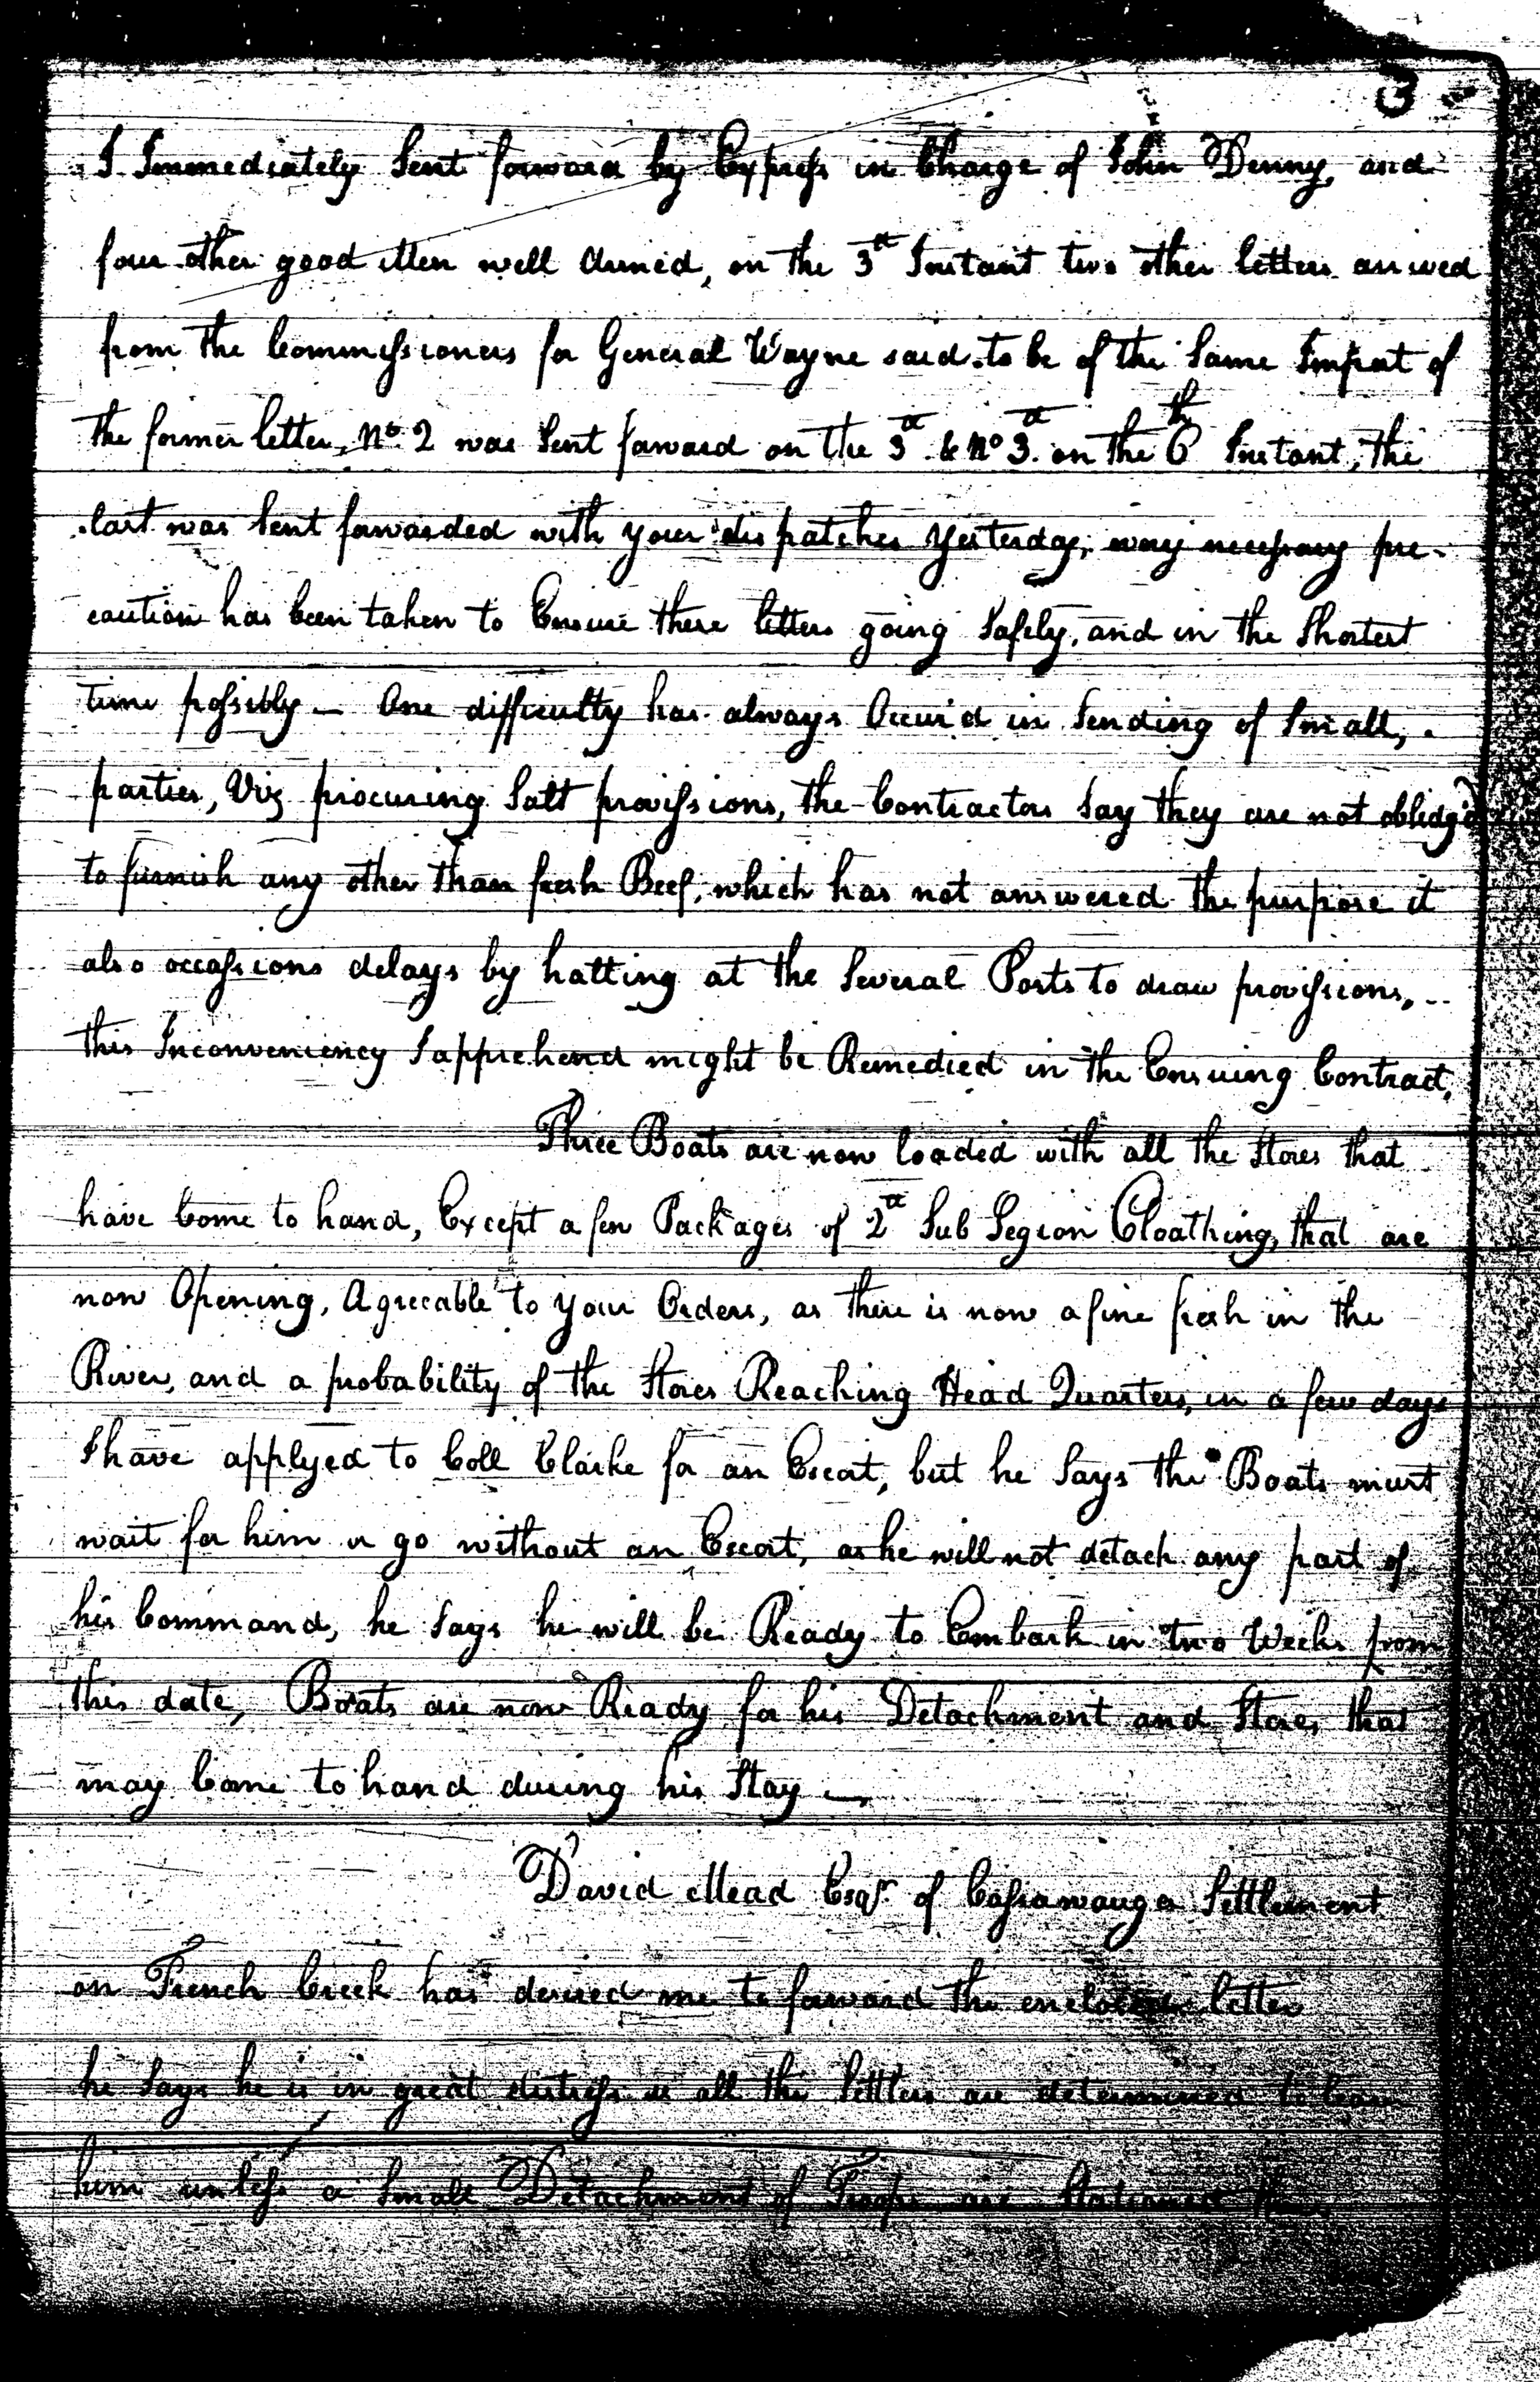 3
I Immediately Sent forward by Express in Charge of John Denny, and
four other good Men well Armed, on the 3d Instant two other letters arrived
from the Commissioners for General Wayne said to be of the Same Import of
the former letter, No. 2 was Sent forward on the 3d & No 3d. on the 6th Instant, the
last was Sent forwarded with your dispatches Yesterday, every necessary pre-
caution has been taken to Ensure these letters going Safely, and in the Shortest
time possibly — One difficulty has always Occur'd in Sending of Small,
parties, Viz procuring Salt provissions, the Contractors Say they are not oblidg'd
to furnish any other than fresh Beef, which has not answered the purpose it
also occassions delays by halting at the Several Posts to draw provissions,
this Inconveniency I apprehend might be Remedied in the Ensuing Contract,
Three Boats are now loaded with all the Stores that
have Come to hand, Except a few Packages of 2d Sub Legion Cloathing, that are
now Opening, Agreeable to your Orders, as there is now a fine fresh in the
River, and a probability of the Stores Reaching Head Quarters, in a few days
I have applyed to Coll Clarke for an Escort, but he Says the Boats must
wait for him or go without an Escort, as he will not detach any part of
his Command, he Says he will be Ready to Embark in two Weeks from
this date, Boats are now Ready for his Detachment and Stores that
may Come to hand during his Stay —
David Mead Esqr. of Cassawauga Settlement
on French Creek has desired me to forward the enclosed letter
he Says he is in great distress as all the Settlers are determined to leave
him unless a Small Detachment of Troops are Stationed